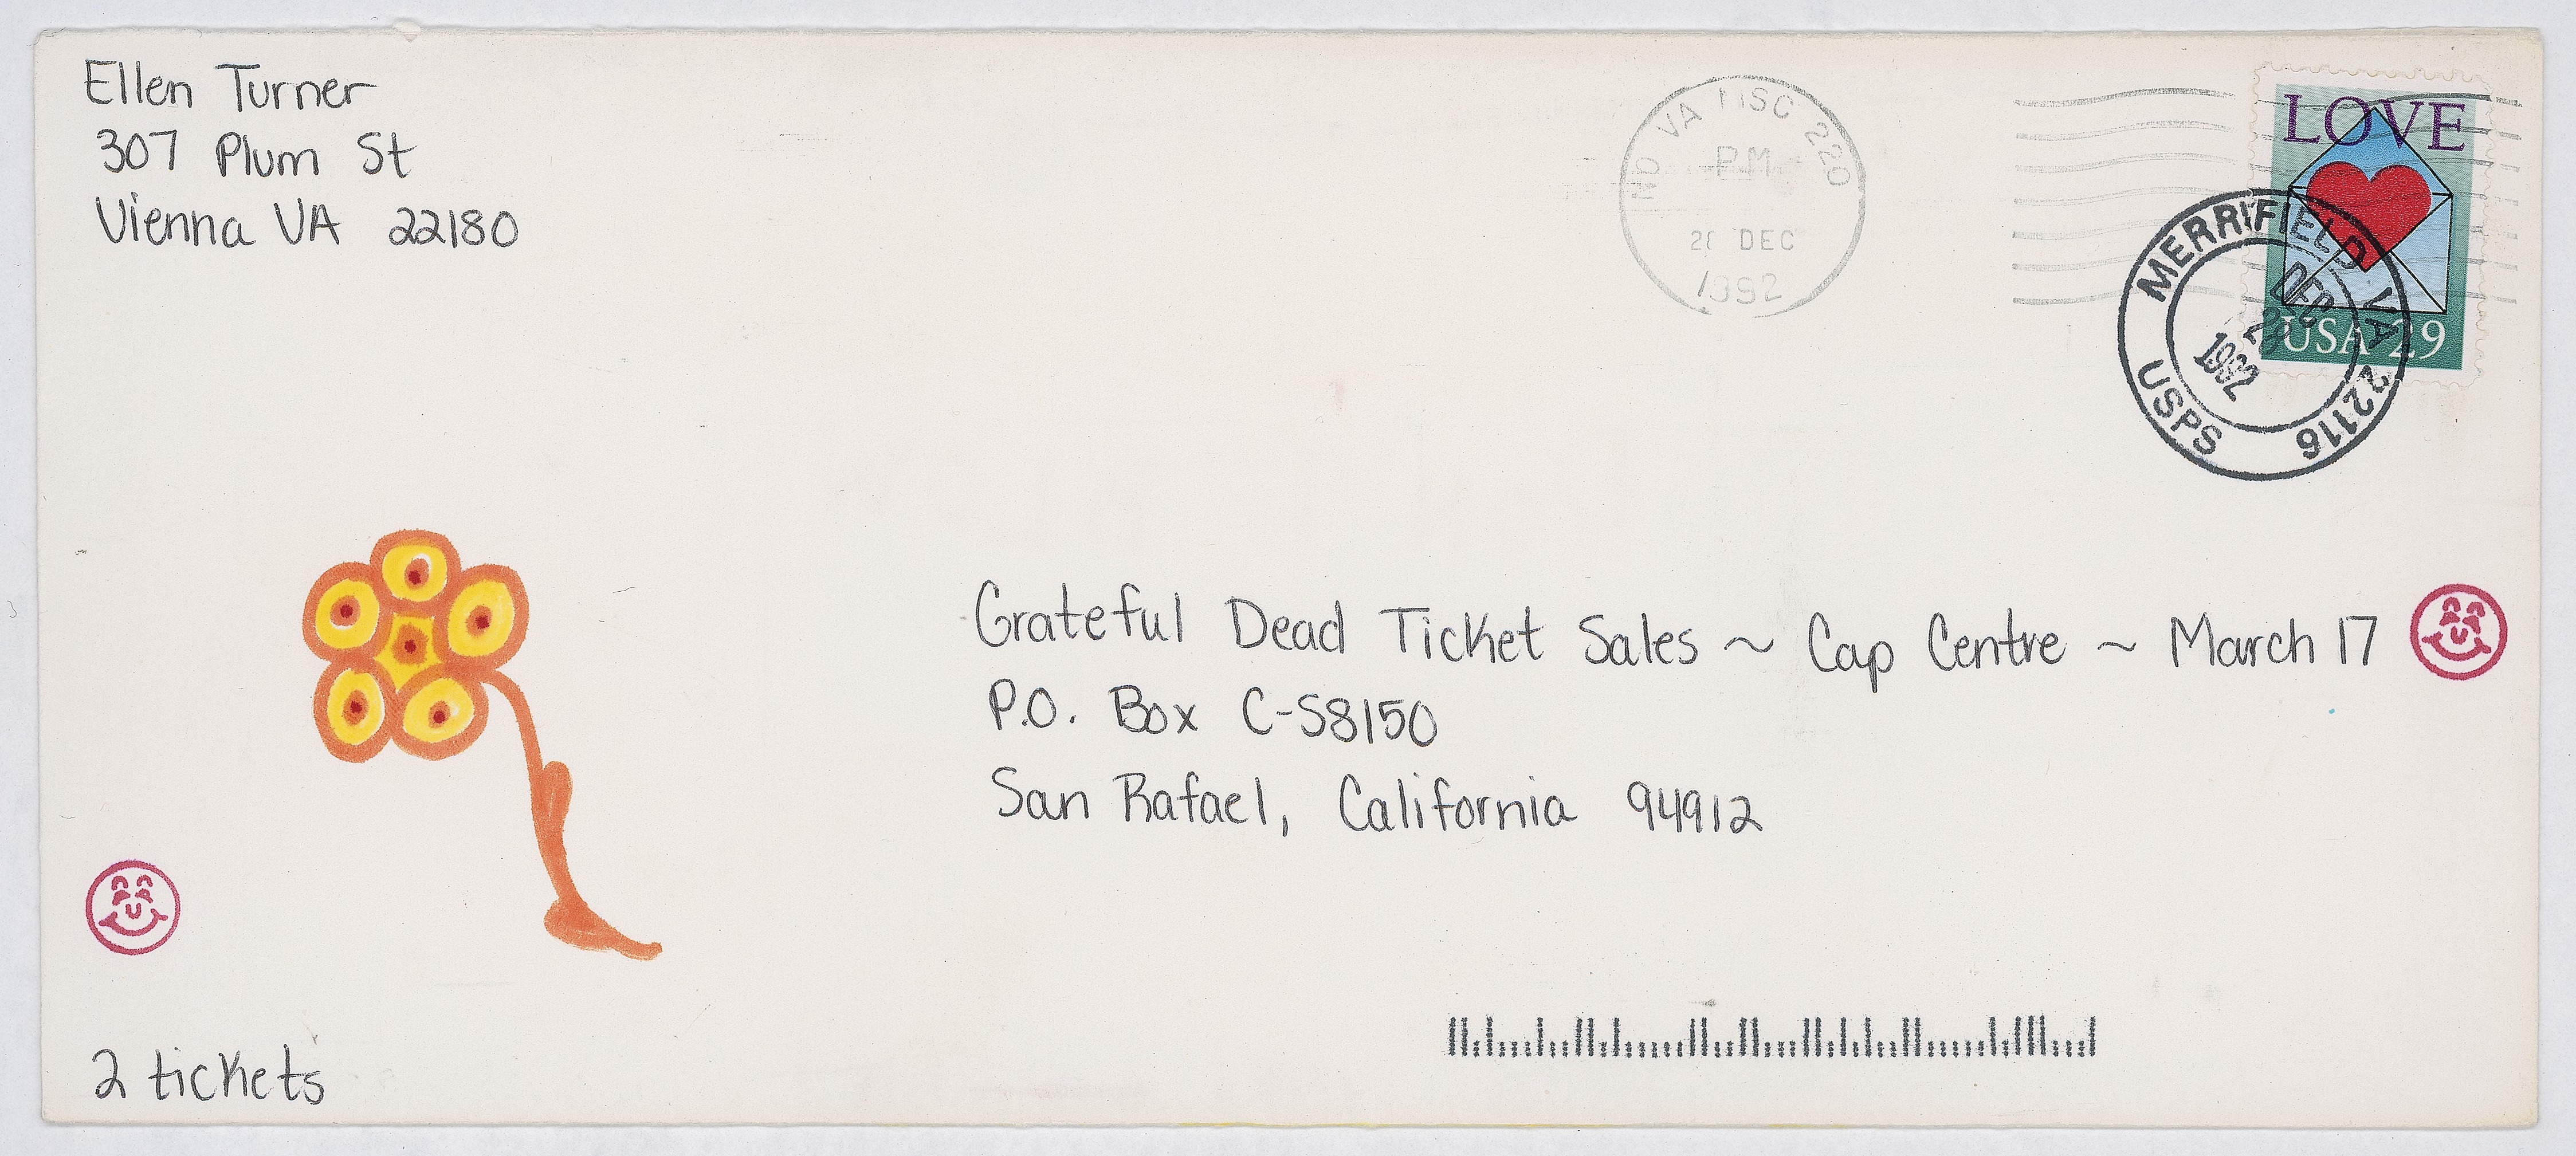 Ellen Turner
307 Plum St
Vienna VA 22180
VA MSC 220
PM
28 DEC
1992
LOVE
USA 29
MERRIFIELD VA 22116
DEC 28
1992
USPS
Grateful Dead Ticket Sales ~ Cap Centre ~ March 17
P.O. Box C-S8150
San Rafael, California 94912
2 tickets